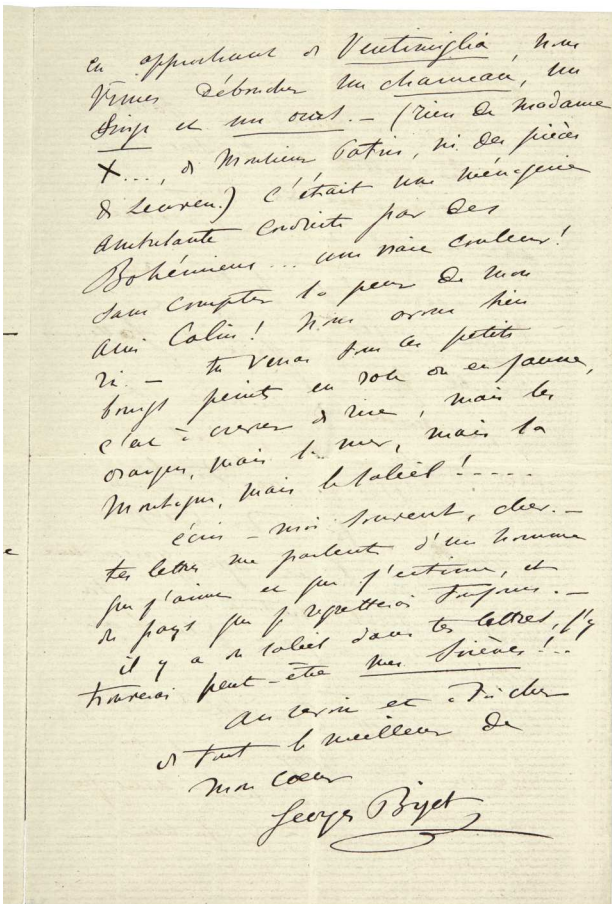 en approchant de Ventimiglia, nous
vîmes déboucher un chameau, un
singe et un ours. — (rien de madame
X..., de Monsieur Patin, ni des pièces
de Leuven.) c'était une ménagerie
ambulante conduite par des
Bohémiens... une vraie couleur!
sans compter la peur de mon
ami Colin! Nous avons bien
ri — tu verras tous ces petits
bourgs peints en rose ou en jaune,
c'est à crever de rire, mais les
oranges, mais la mer, mais la
Montagne, mais le soleil!.....
écris-moi souvent, cher. —
tes lettres me parlent d'un homme
que j'aime et que j'estime, et
du pays que je regretterai toujours. —
il y a du soleil dans tes lettres, j'y
trouverai peut-être mes Sirènes!..
au revoir et à toi cher
de tout le meilleur de
mon coeur
Georges Bizet